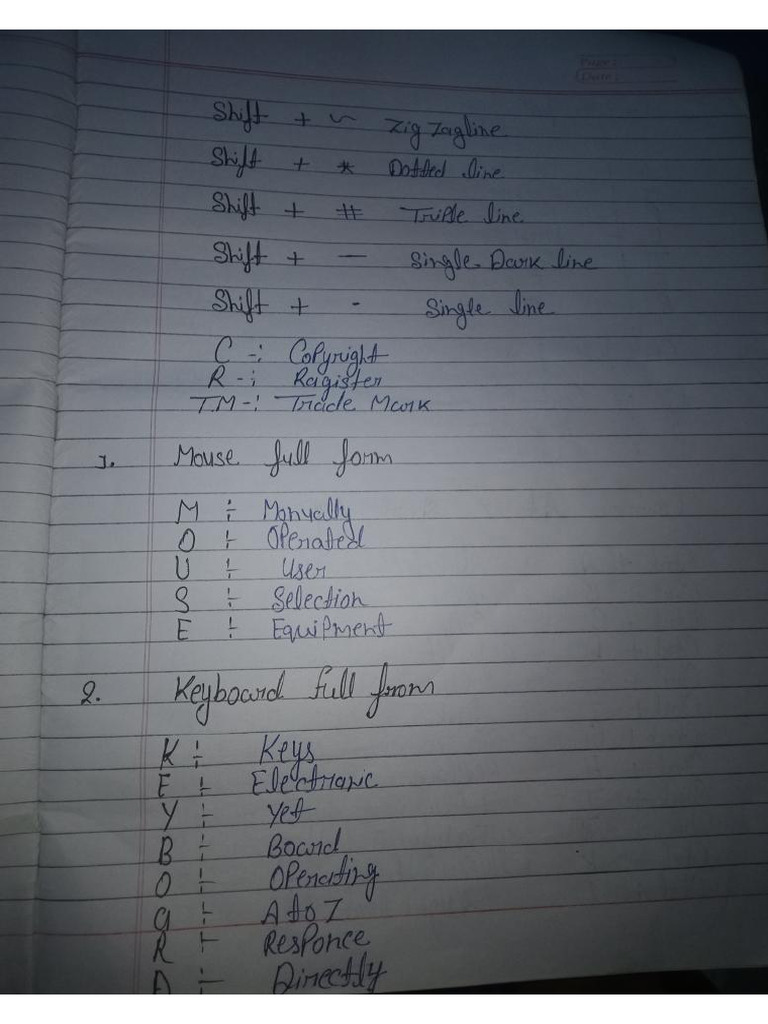 Page:
Date:
Shift + ~ Zig Zagline
Shift + * Dotted line
Shift + # Triple line
Shift + — Single Dark line
Shift + - Single line
C -: Copyright
R -: Ragister
T.M -: Trade Mark
1. Mouse full form
M ÷ Manually
O ÷ Operated
U ÷ User
S ÷ Selection
E ÷ Equipment
2. Keyboard full from
K ÷ Keys
E ÷ Electronic
Y ÷ Yet
B ÷ Board
O ÷ Operating
a ÷ A to Z
R ÷ Responce
D ÷ Directly